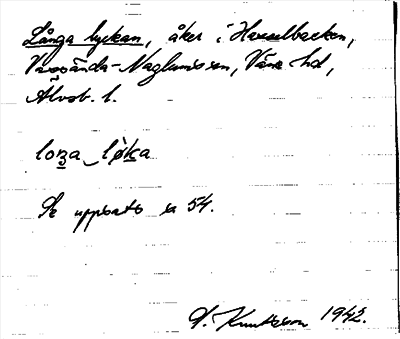 Långa lyckan, åker i Hasselbacken,
Vassända-Naglum sn, Väne hd,
Älvsb. l.
loŋa lø̀ka
Se uppsats s 54.
Knutsson 1942.